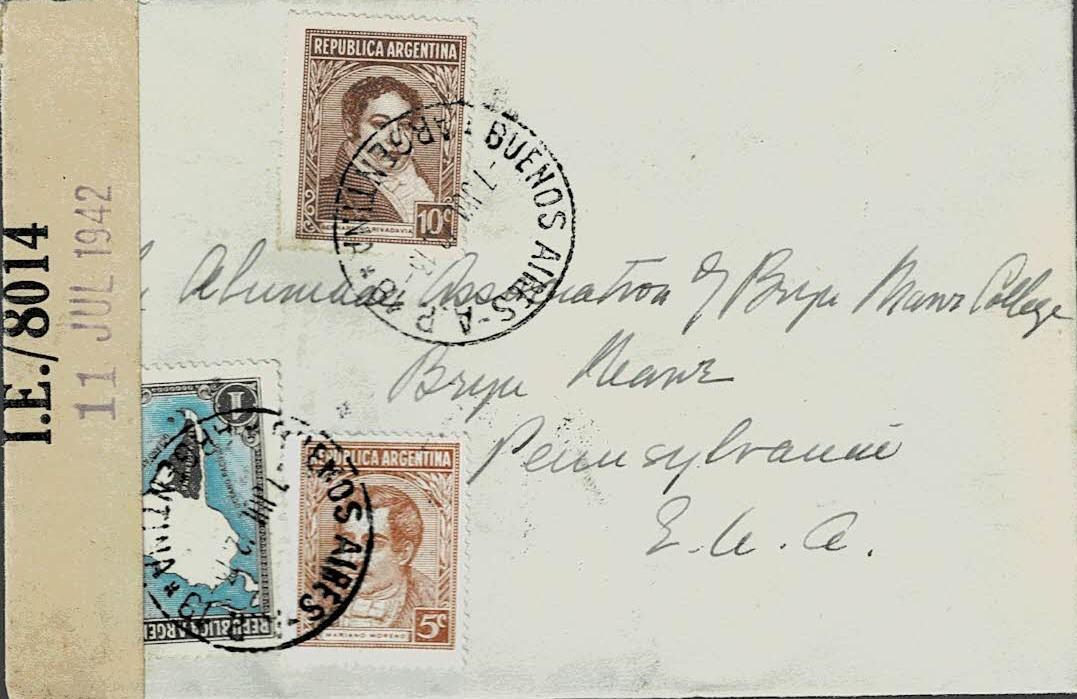 I.E./8014
11 JUL 1942
REPUBLICA ARGENTINA
RIVADAVIA
10c
BUENOS AIRES-A.R.18
ARGENTINA
Alumnae Association of Bryn Mawr College
Bryn Mawr
Pennsylvania
E. U. A.
1
REPUBLICA ARGEN
BUENOS AIRES
ARGENTINA
REPUBLICA ARGENTINA
MARIANO MORENO
5c